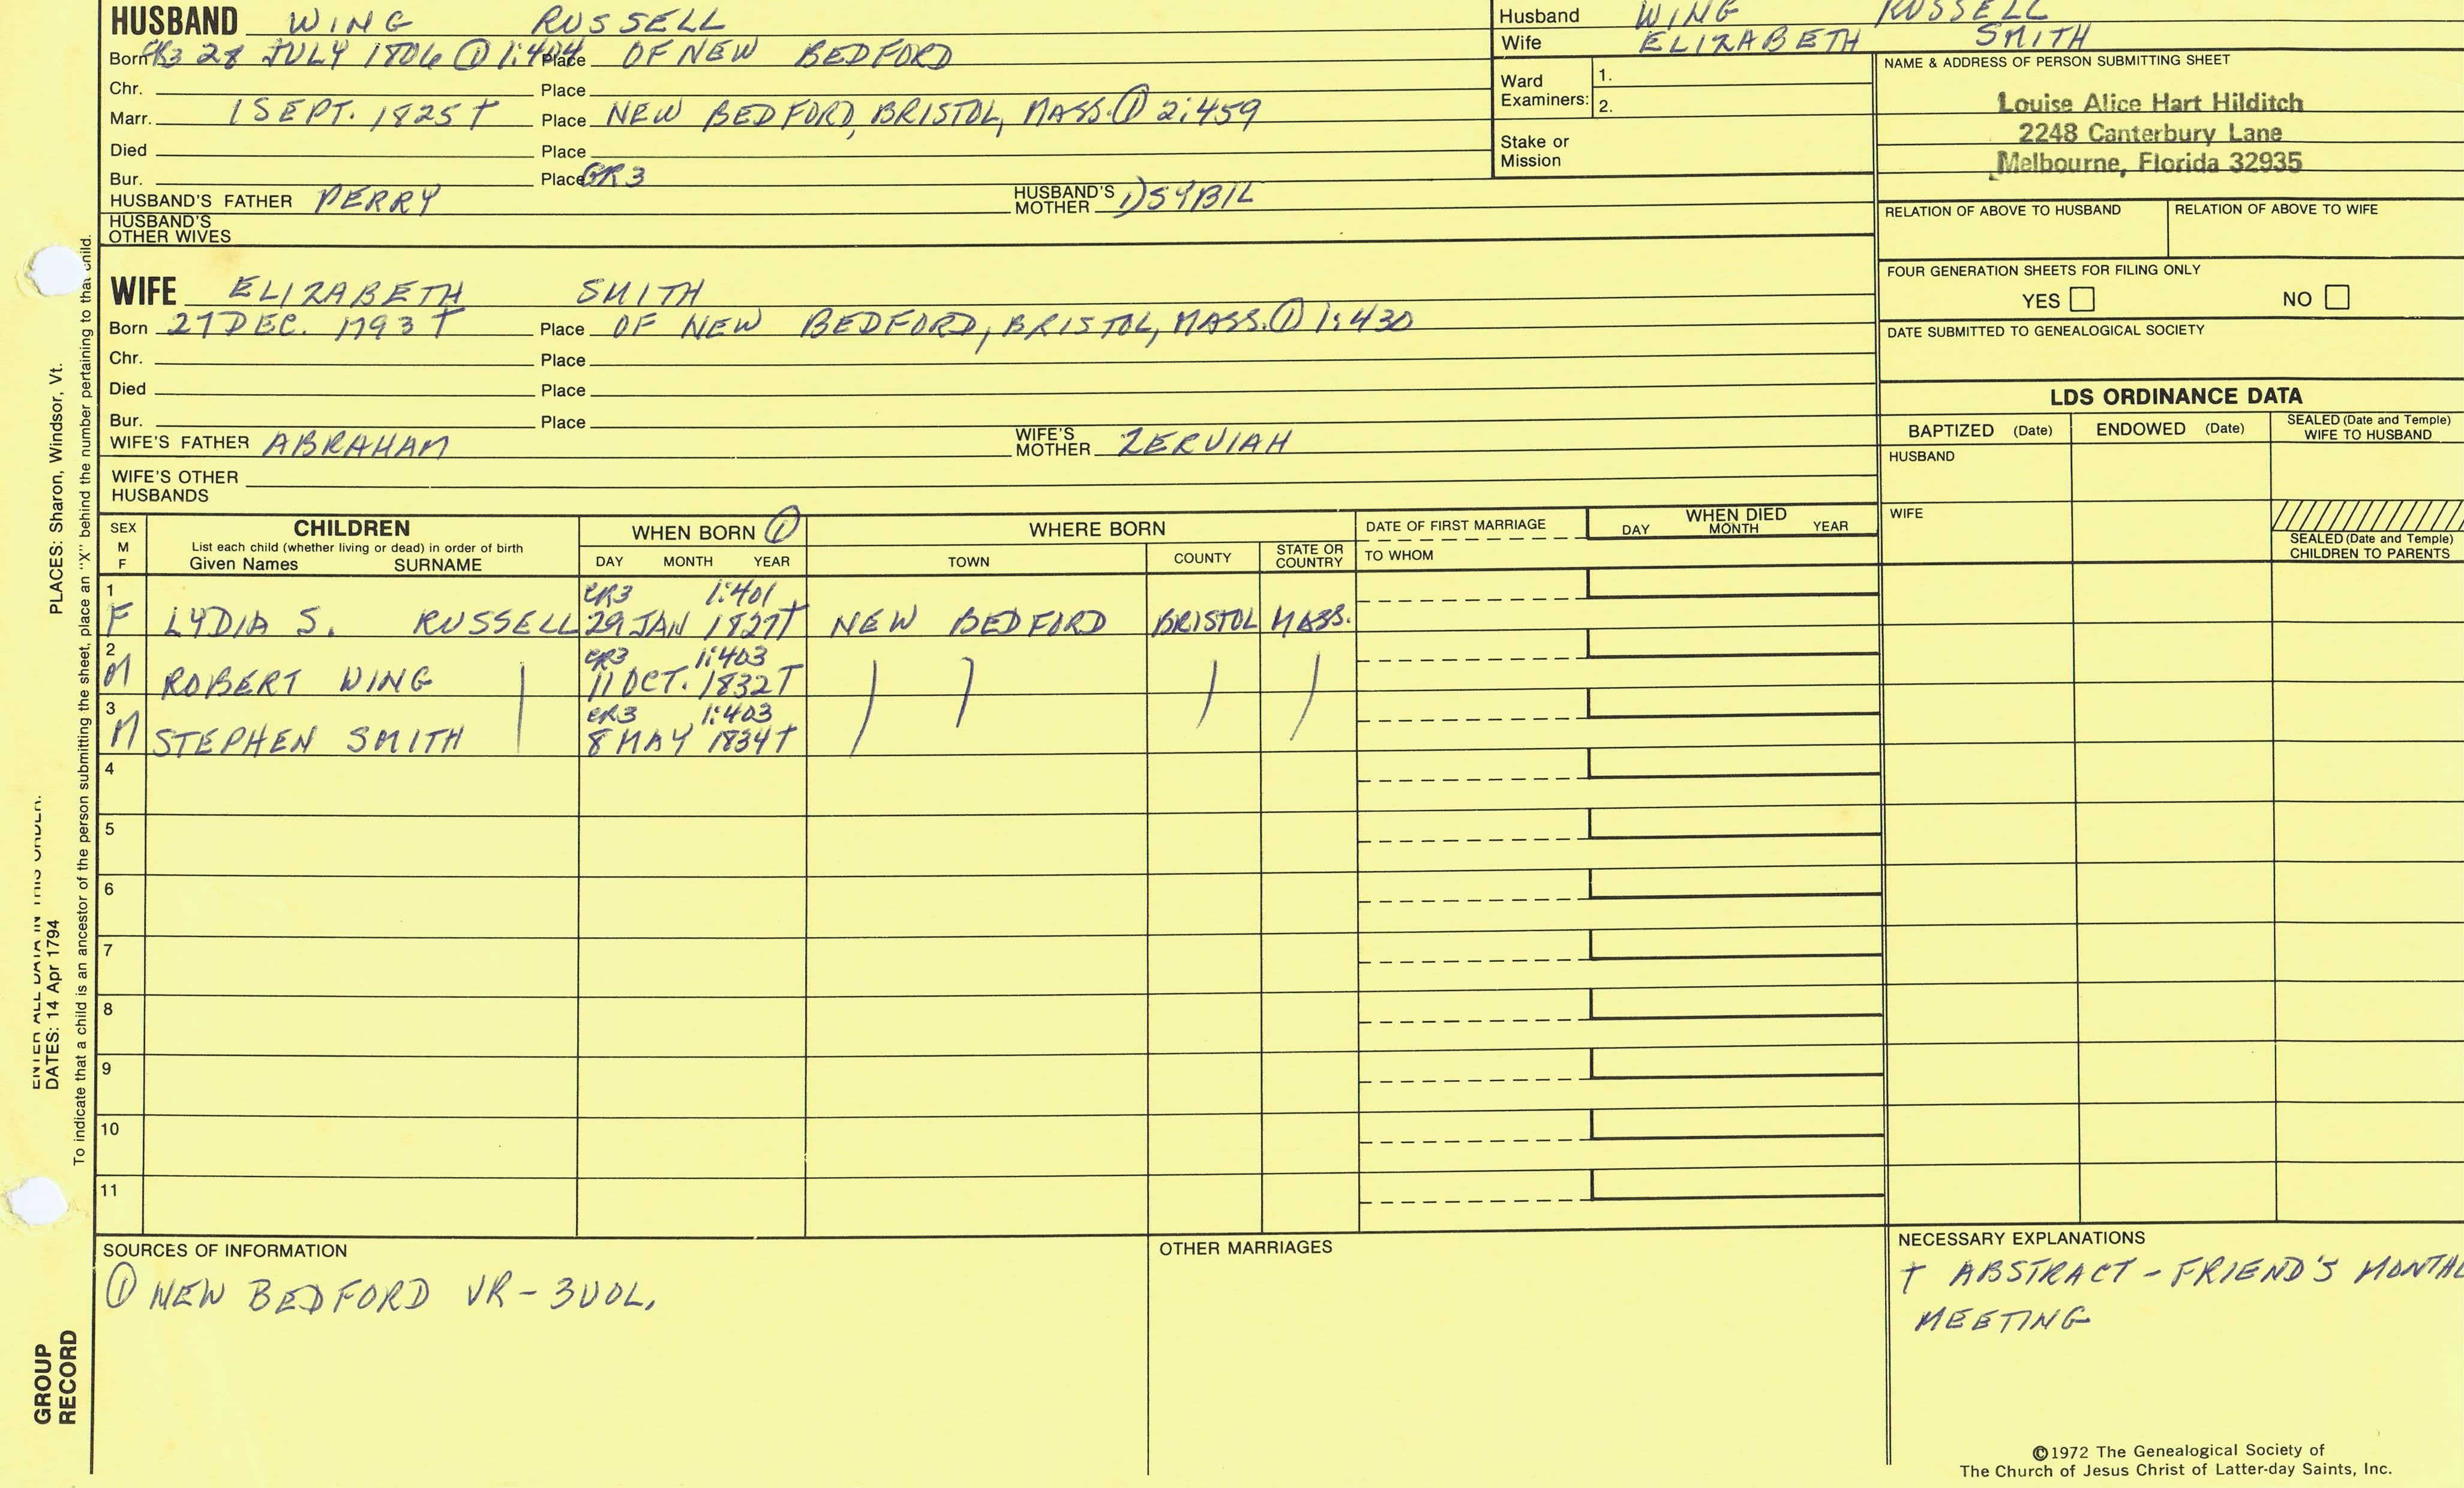 HUSBAND WING RUSSELL
Born 28 JULY 1806 ① 1:404 Place OF NEW BEDFORD
Chr. Place
Marr. 1 SEPT. 1825 † Place NEW BEDFORD, BRISTOL, MASS. ① 2:459
Died Place
Bur. Place GR3
HUSBAND'S FATHER PERRY HUSBAND'S MOTHER 1) SYBIL
HUSBAND'S OTHER WIVES
WIFE ELIZABETH SMITH
Born 27 DEC. 1793 † Place OF NEW BEDFORD, BRISTOL, MASS. ① 1:430
Chr. Place
Died Place
Bur. Place
WIFE'S FATHER ABRAHAM WIFE'S MOTHER ZERVIAH
WIFE'S OTHER HUSBANDS
Husband WING RUSSELL
Wife ELIZABETH SMITH
Ward Examiners: 1.
2.
Stake or Mission
NAME & ADDRESS OF PERSON SUBMITTING SHEET
Louise Alice Hart Hilditch
2248 Canterbury Lane
Melbourne, Florida 32935
RELATION OF ABOVE TO HUSBAND RELATION OF ABOVE TO WIFE
FOUR GENERATION SHEETS FOR FILING ONLY
YES NO
DATE SUBMITTED TO GENEALOGICAL SOCIETY
LDS ORDINANCE DATA
BAPTIZED (Date) ENDOWED (Date) SEALED (Date and Temple) WIFE TO HUSBAND
HUSBAND
WIFE
SEALED (Date and Temple) CHILDREN TO PARENTS
SEX M F CHILDREN WHEN BORN ① WHERE BORN DATE OF FIRST MARRIAGE WHEN DIED
List each child (whether living or dead) in order of birth
Given Names SURNAME DAY MONTH YEAR TOWN COUNTY STATE OR COUNTRY TO WHOM DAY MONTH YEAR
1 CR3 1:401
F LYDIA S. RUSSELL 29 JAN 1827 † NEW BEDFORD BRISTOL MASS.
2 CR3 1:403
M ROBERT WING 11 OCT. 1832 †
3 CR3 1:403
M STEPHEN SMITH 8 MAY 1834 †
4
5
6
7
8
9
10
11
SOURCES OF INFORMATION
① NEW BEDFORD VR - 3VOL.
OTHER MARRIAGES
NECESSARY EXPLANATIONS
† ABSTRACT - FRIEND'S
MEETING
©1972 The Genealogical Society of
The Church of Jesus Christ of Latter-day Saints, Inc.
PLACES: Sharon, Windsor, Vt.
DATES: 14 Apr 1794
To indicate that a child is an ancestor of the person submitting the sheet, place an "X" behind the number pertaining to that child.
GROUP
RECORD